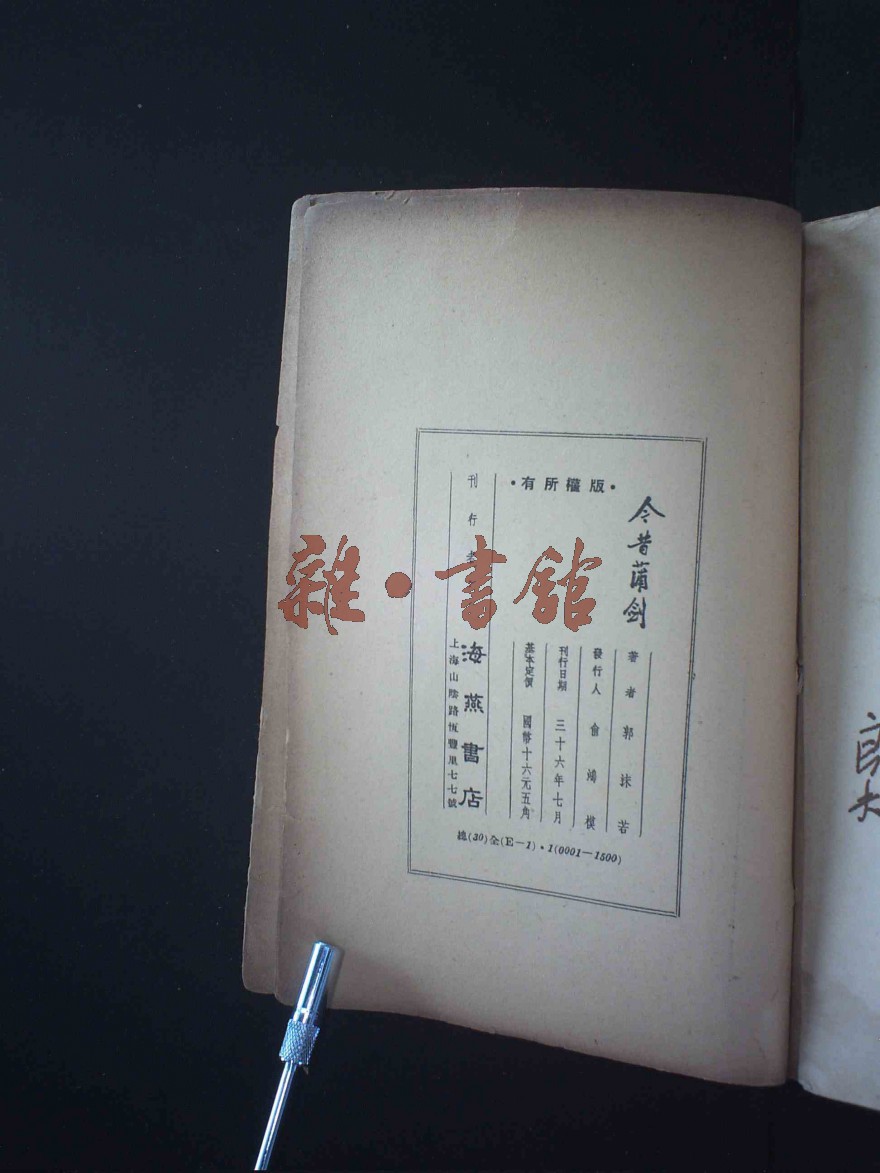 今昔蒲剑
·版權所有·
著者 郭沫若
發行人 俞鴻模
刊行日期 三十六年七月
基本定價 國幣十六元五角
刊行者 海燕書店
上海山陰路恆豐里七七號
總(30)全(E—1)·1(0001—1500)
雜·書館